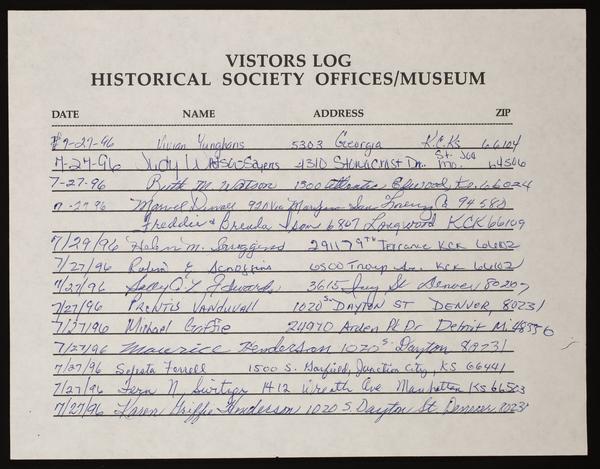 VISTORS LOG
HISTORICAL SOCIETY OFFICES/MUSEUM
DATE NAME ADDRESS ZIP
7-27-96 Vivian Yunghans 5303 Georgia K.C.Ks 66104
7-27-96 Judy Watson-Sayers 4310 Stonecrest Dr. St. Joe Mo. 64506
7-27-96 Ruth M. Watson 1300 Atlantic Elwood, Ks. 66024
7-27-96 Marvel 920 Via San Lorenzo Ca 94580
Freddie & Brenda 6807 Longwood KCK 66109
7/29/96 M. Scroggins 2911 79th Terrace KCK 66102
7/27/96 E Scroggins 6500 Troup Av. KCK 66102
7/27/96 Edwards 3615 Jay St Denver, 80207
7/27/96 Prentis Vanduvall 1020 S. Dayton St Denver, 80231
7/27/96 Michael Goffie 24970 Arden Pk Dr Detroit M. 48336
7/27/96 Maurice Henderson 1020 S. Dayton 80231
7/27/96 Ferrell 1500 S. Garfield, Junction City, KS 66441
7/27/96 Fern N. Switzer 1412 Wreath Ave Manhattan KS 66503
7/27/96 Karen Griffie Henderson 1020 S. Dayton St. Denver 80231